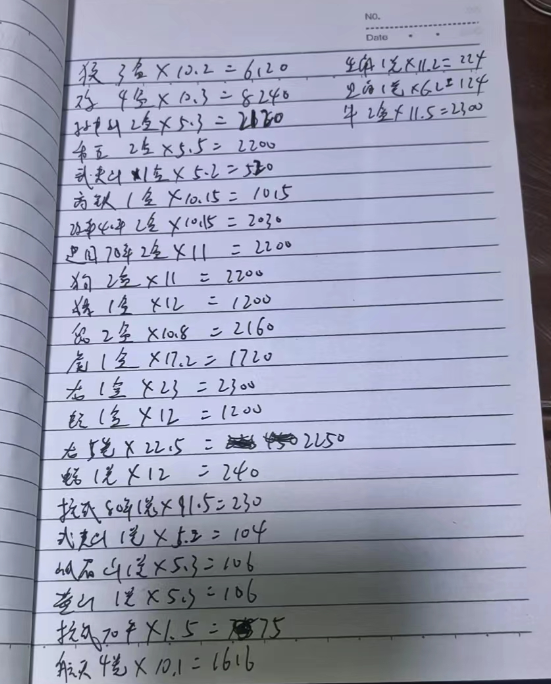 NO.
Date
猴 3盒×10.2=6120
鸡 4盒×10.3=8240
2盒×5.3=2120
2盒×5.5=2200
武夷山 1盒×5.2=520
高铁 1盒×10.15=1015
改革40年 2盒×10.15=2030
建国70年 2盒×11 =2200
狗 2盒×11 =2200
猪 1盒 ×12 =1200
2盒×10.8=2160
虎 1盒×17.2=1720
龙 1盒×23=2300
蛇 1盒×12 =1200
龙 5卷×22.5 = 2250
蛇 1卷×12 =240
抗战 80年1卷×11.5=230
武夷山 1卷×5.2=104
1卷×5.3=106
黄山 1卷×5.3=106
抗战70年×1.5=75
航天 4卷×10.1=1616
1卷×11.2=224
1卷×6.2=124
牛 2盒×11.5=2300